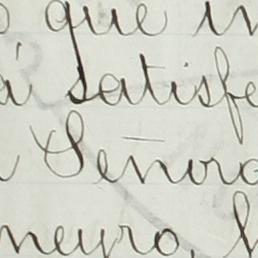 que
á satisfe
Señora
neyro,